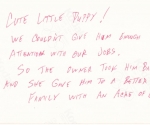 Cute Little Puppy!
We couldn't give him enough
attention with our jobs.
So the owner took him ba
and she gave him to a better
family with an acre of